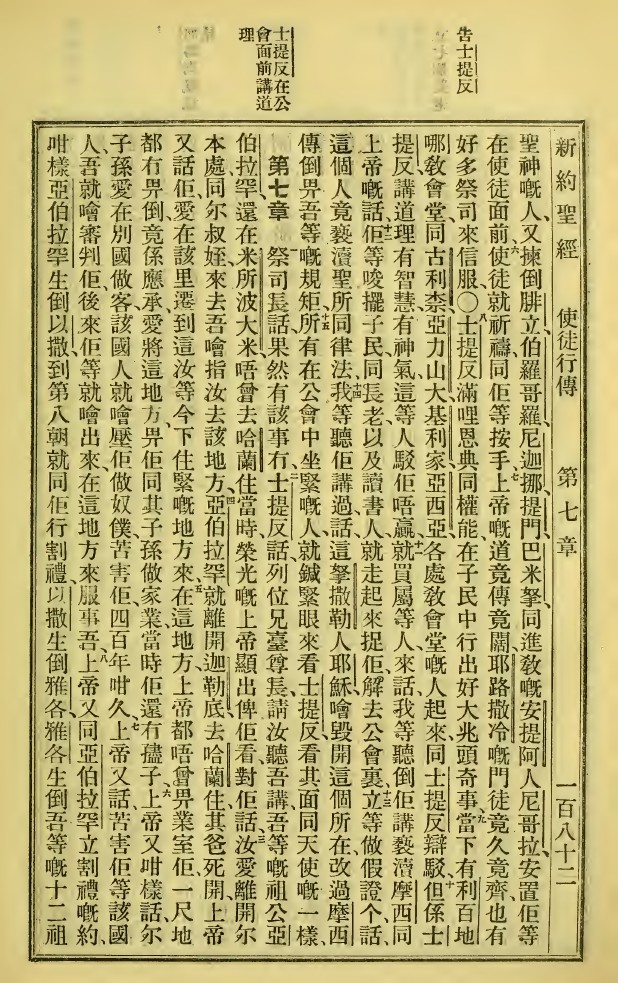 告士提反
士提反在公
會面前講道
理
新約聖經 使徒行傳 第七章 一百八十二
聖神嘅人、又揀倒腓立、伯羅哥羅、尼迦挪、提門、巴米拏、同進敎嘅安提阿人尼哥拉、安置佢等
在使徒面前、六使徒就祈禱、同佢等按手、七上帝嘅道竟傳竟闊、耶路撒冷嘅門徒竟久竟齊、也有
好多祭司來信服〇八士提反滿哩恩典同權能、在子民中行出好大兆頭奇事、九當下有利百地
哪敎會堂、同古利柰、亞力山大、基利家、亞西亞、各處敎會堂嘅人起來、同士提反辯駁、十但係士
提反講道理有智慧有神氣、這等人駁佢唔贏、十一就買屬等人來話、我等聽倒佢講褻瀆摩西同
上帝嘅話、十二佢等唆擺子民同長老、以及讀書人、就走起來捉佢、解去公會裏、十三立等做假證个話、
這個人竟褻瀆聖所同律法、十四我等聽佢講過話、這拏撒勒人耶穌噲毀開這個所在、改過摩西
傳倒畀吾等嘅規矩、十五所有在公會中坐緊嘅人、就鍼緊眼來看士提反、看其面同天使嘅一樣、
第七章 一祭司長話、果然有該事冇、二士提反話、列位兄臺尊長、請汝聽吾講、吾等嘅祖公亞
伯拉罕、還在米所波大米、唔曾去哈蘭住當時、榮光嘅上帝顯出俾佢看、三對佢話、汝愛離開尔
本處、同尔叔姪、來去吾噲指汝去該地方、四亞伯拉罕就離開迦勒底、去哈蘭住、其爸死開、上帝
又話佢、愛在該里遷到這汝等今下住緊嘅地方來、五在這地方上帝都唔曾畀業室佢、一尺地
都冇畀倒、竟係應承、愛將這地方、畀佢同其子孫做家業、當時佢還冇儘子、六上帝又咁樣話、尔
子孫愛在別國做客、該國人就噲壓佢做奴僕、苦害佢四百年咁久、七上帝又話、苦害佢等該國
人、吾就噲審判佢、後來佢等就噲出來、在這地方來服事吾、八上帝又同亞伯拉罕立割禮嘅約、
咁樣亞伯拉罕生倒以撒、到第八朝就同佢行割禮、以撒生倒雅各、雅各生倒吾等嘅十二祖